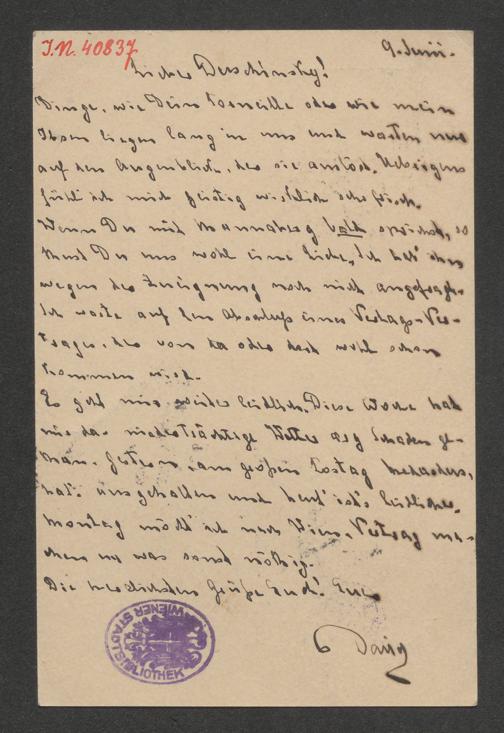 I.N. 40837
9. Juni.
Lieber Derschinsky!
Dinge, wie Dein Corneille oder wie mein
Ibsen liegen lang in uns und warten nur
auf den Augenblick, der sie auslöst. Uebrigens
fühl ich mich geistig wirklich sehr frisch.
Wenn Du mit Mannaberg bald sprichst, so
thust Du uns wohl eine Liebe. Ich hab' ihn
wegen der Zueignung noch nicht angefragt.
Ich warte auf den Abschluss eines Verlags-Ver-
trages, der von da oder dort wohl schon
kommen wird.
Es geht mir wieder leidlich. Diese Woche hat
mir das niederträchtige Wetter arg Schaden ge-
than. Gestern, am großen
hab' ausgehalten und heut ist's leidlicher.
Montag möcht' ich nach Wien. Vertrag ma-
chen und was sonst nöthig.
Die herzlichsten Grüße Euch! Euer
David
WIENER STADTBIBLIOTHEK